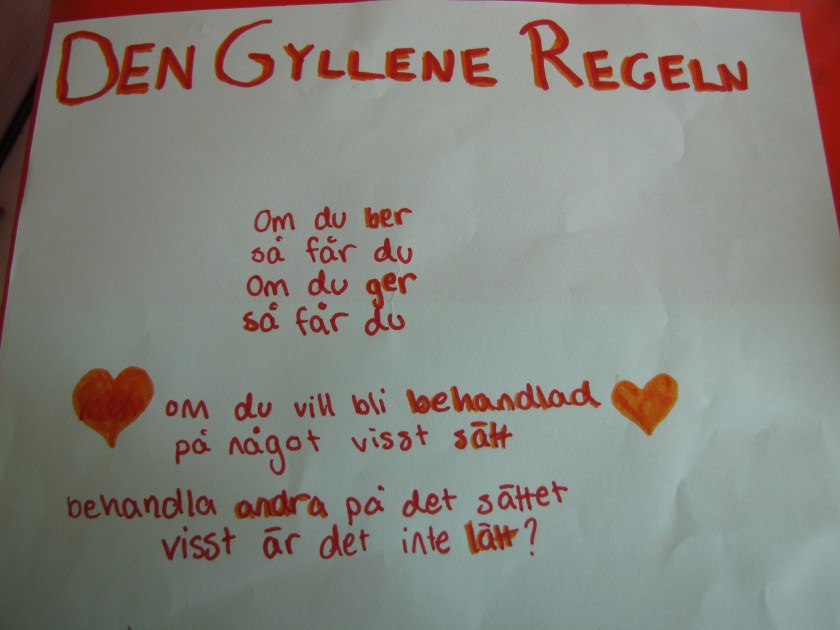 DEN GYLLENE REGELN
Om du ber
så får du
om du ger
så får du
om du vill bli behandlad
på något visst sätt
behandla andra på det sättet
visst är det inte lätt?